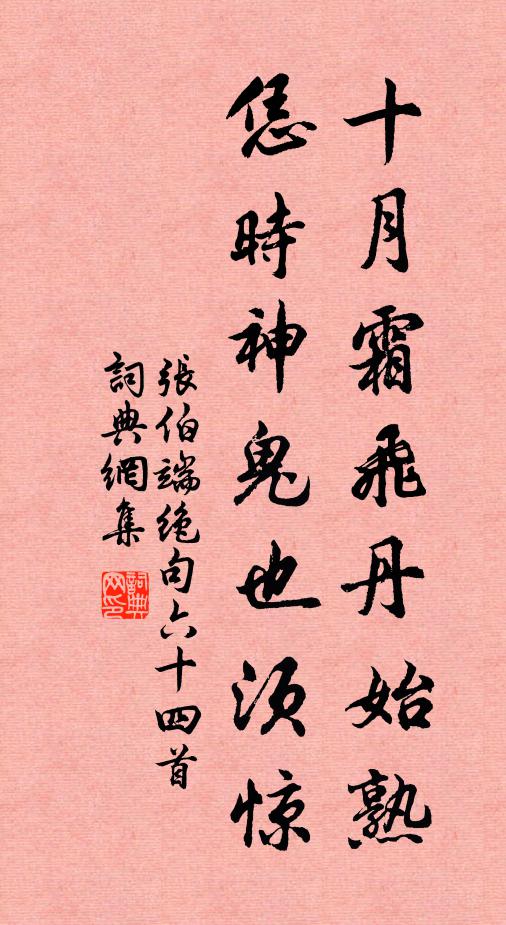 十月霜飛丹始熟
恁時神鬼也須惊
張伯端絶句六十四首
詞典網集
詞典網印